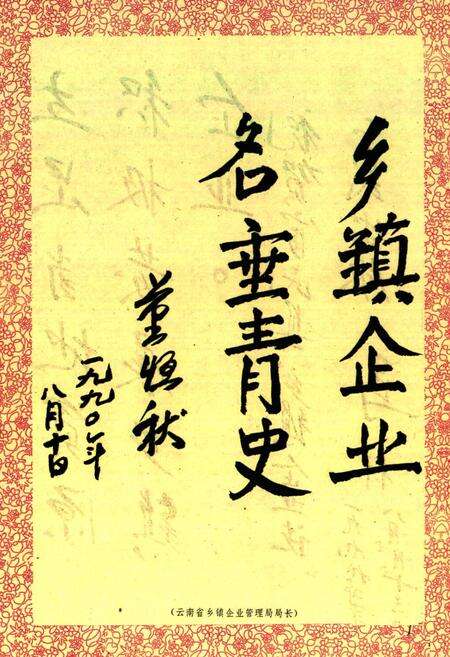 乡镇企业
名垂青史
董恒秋
一九九〇年
八月十日
(云南省乡镇企业管理局局长)
1